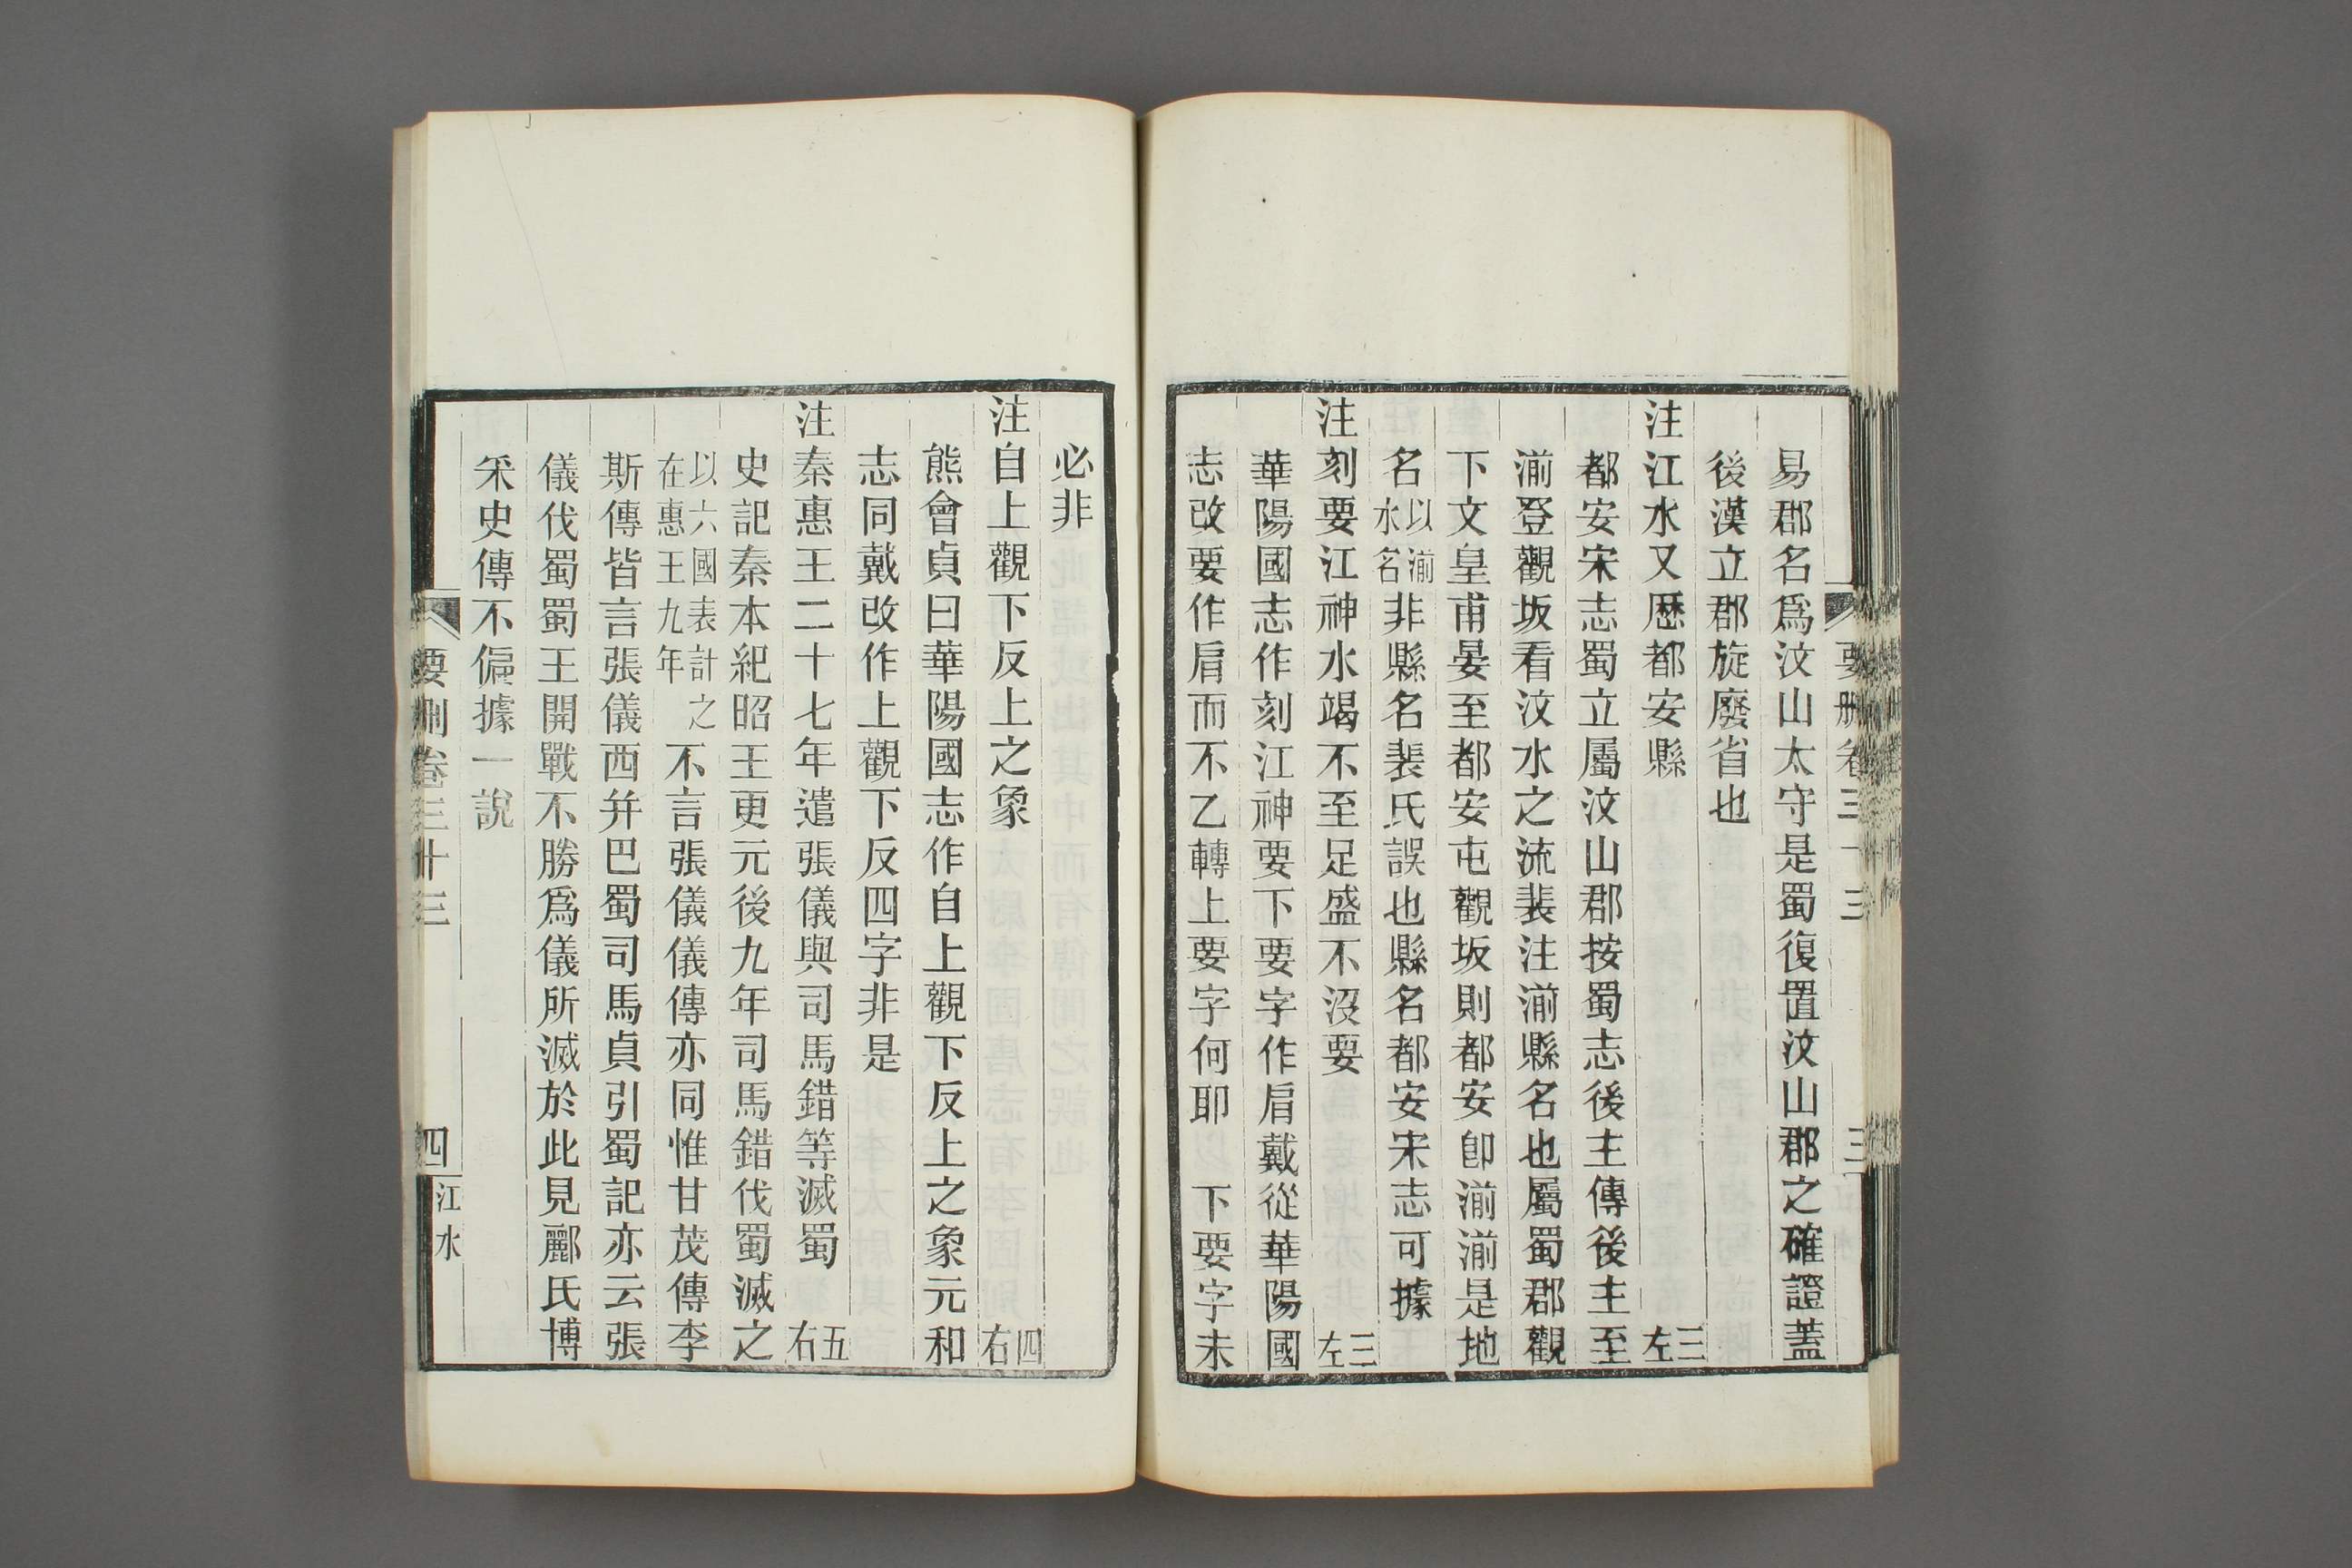 要刪卷三十三 三
易郡名爲汶山太守是蜀復置汶山郡之確證蓋
後漢立郡旋廢省也
注江水又歷都安縣 三左
都安宋志蜀立屬汶山郡按蜀志後主傳後主至
湔登觀坂看汶水之流裴注湔縣名也屬蜀郡觀
下文皇甫晏至都安屯觀坂則都安卽湔湔是地
名以湔水名非縣名裴氏誤也縣名都安宋志可據
注刻要江神水竭不至足盛不沒要 三左
華陽國志作刻江神要下要字作肩戴從華陽國
志改要作肩而不乙轉上要字何耶 下要字未
必非
注自上觀下反上之象 四右
熊會貞曰華陽國志作自上觀下反上之象元和
志同戴改作上觀下反四字非是
注秦惠王二十七年遣張儀與司馬錯等滅蜀 五右
史記秦本紀昭王更元後九年司馬錯伐蜀滅之
以六國表計之在惠王九年不言張儀儀傳亦同惟甘茂傳李
斯傳皆言張儀西幷巴蜀司馬貞引蜀記亦云張
儀伐蜀蜀王開戰不勝爲儀所滅於此見酈氏博
釆史傳不偏據一說
要刪卷三十三 四 江水